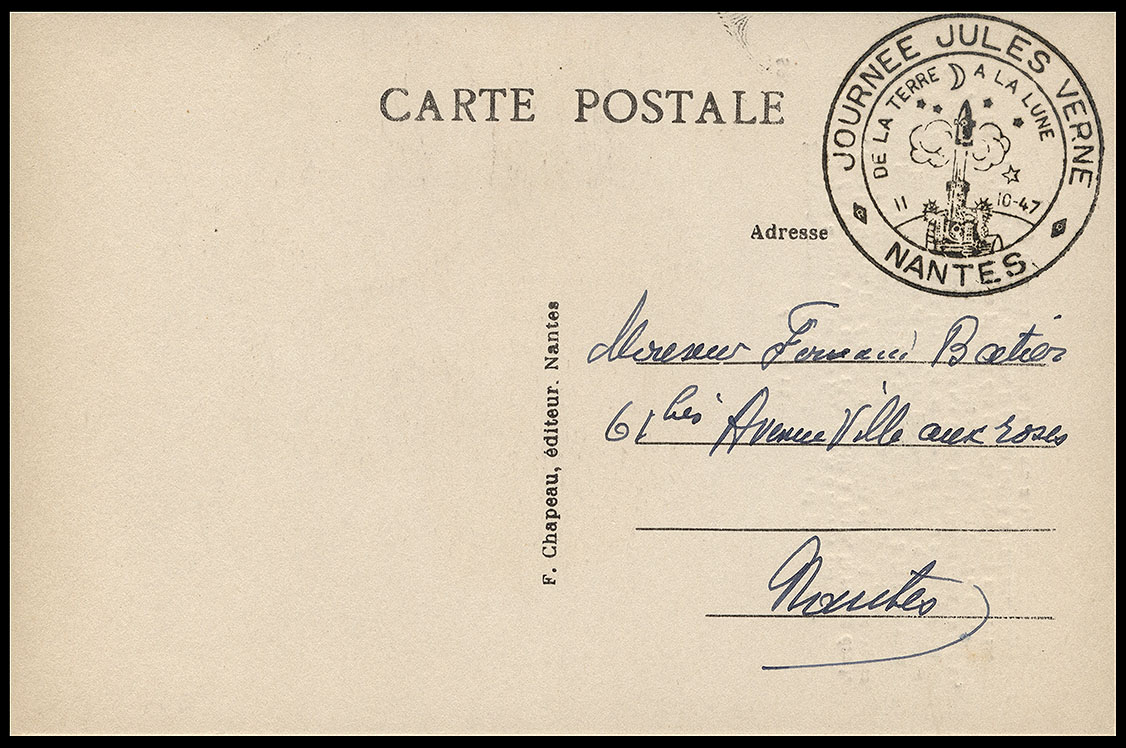 CARTE POSTALE
JOURNEE JULES VERNE
DE LA TERRE A LA LUNE
11 10-47
NANTES
Adresse
F. Chapeau, éditeur. Nantes
Monsieur Fernand Batier
61 bis Avenue Ville aux roses
Nantes